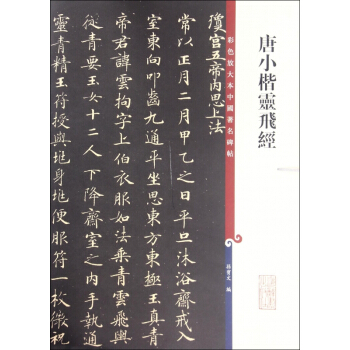 唐小楷靈飛經
彩色放大本中國著名碑帖
孫寶文 編
瓊宮五帝內思上法
常以正月二月甲乙之日平旦沐浴齋戒入
室東向叩齒九通平坐思東方東極玉真青
帝君諱雲拘字上伯衣服如法乘青雲飛輿
從青要玉女十二人下降齋室之內手執通
靈青精玉符授與兆身兆便服符一枚微祝